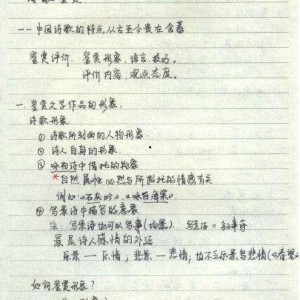 --中国诗歌的特点从古至今贵在含蓄
鉴赏评价 鉴赏形象、语言、技巧。
评价内容、观点态度。
一. 鉴赏文学作品的形象.
诗歌形象
① 诗歌所刻画的人物形象
② 诗人自身的形象.
③ 咏物诗中借托的物象
*自然属性必然与所抒托的情感有关
例如《石灰吟》.《咏白海棠》
④ 写景诗中描写的意象
注 写景诗也可以写事(场景)
景是诗人陈情的外运
乐景 — 乐情; 悲景 — 悲情; 也不乏乐景写悲情
如何鉴赏形象?